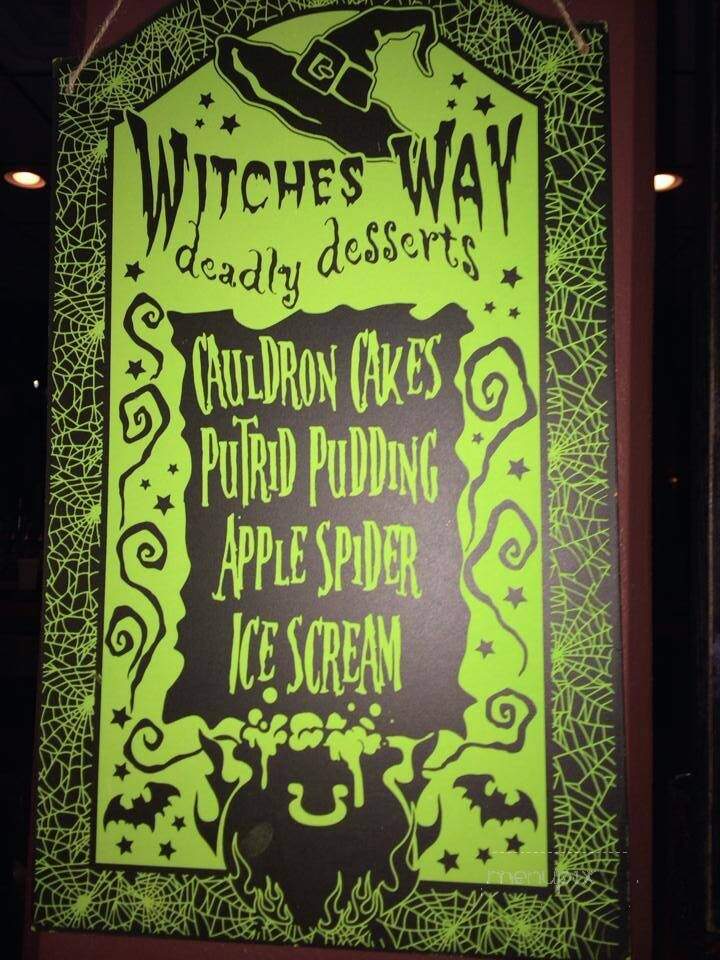 WITCHES WAY
deadly desserts
CAULDRON CAKES
PUTRID PUDDING
APPLE SPIDER
ICE SCREAM
menupix